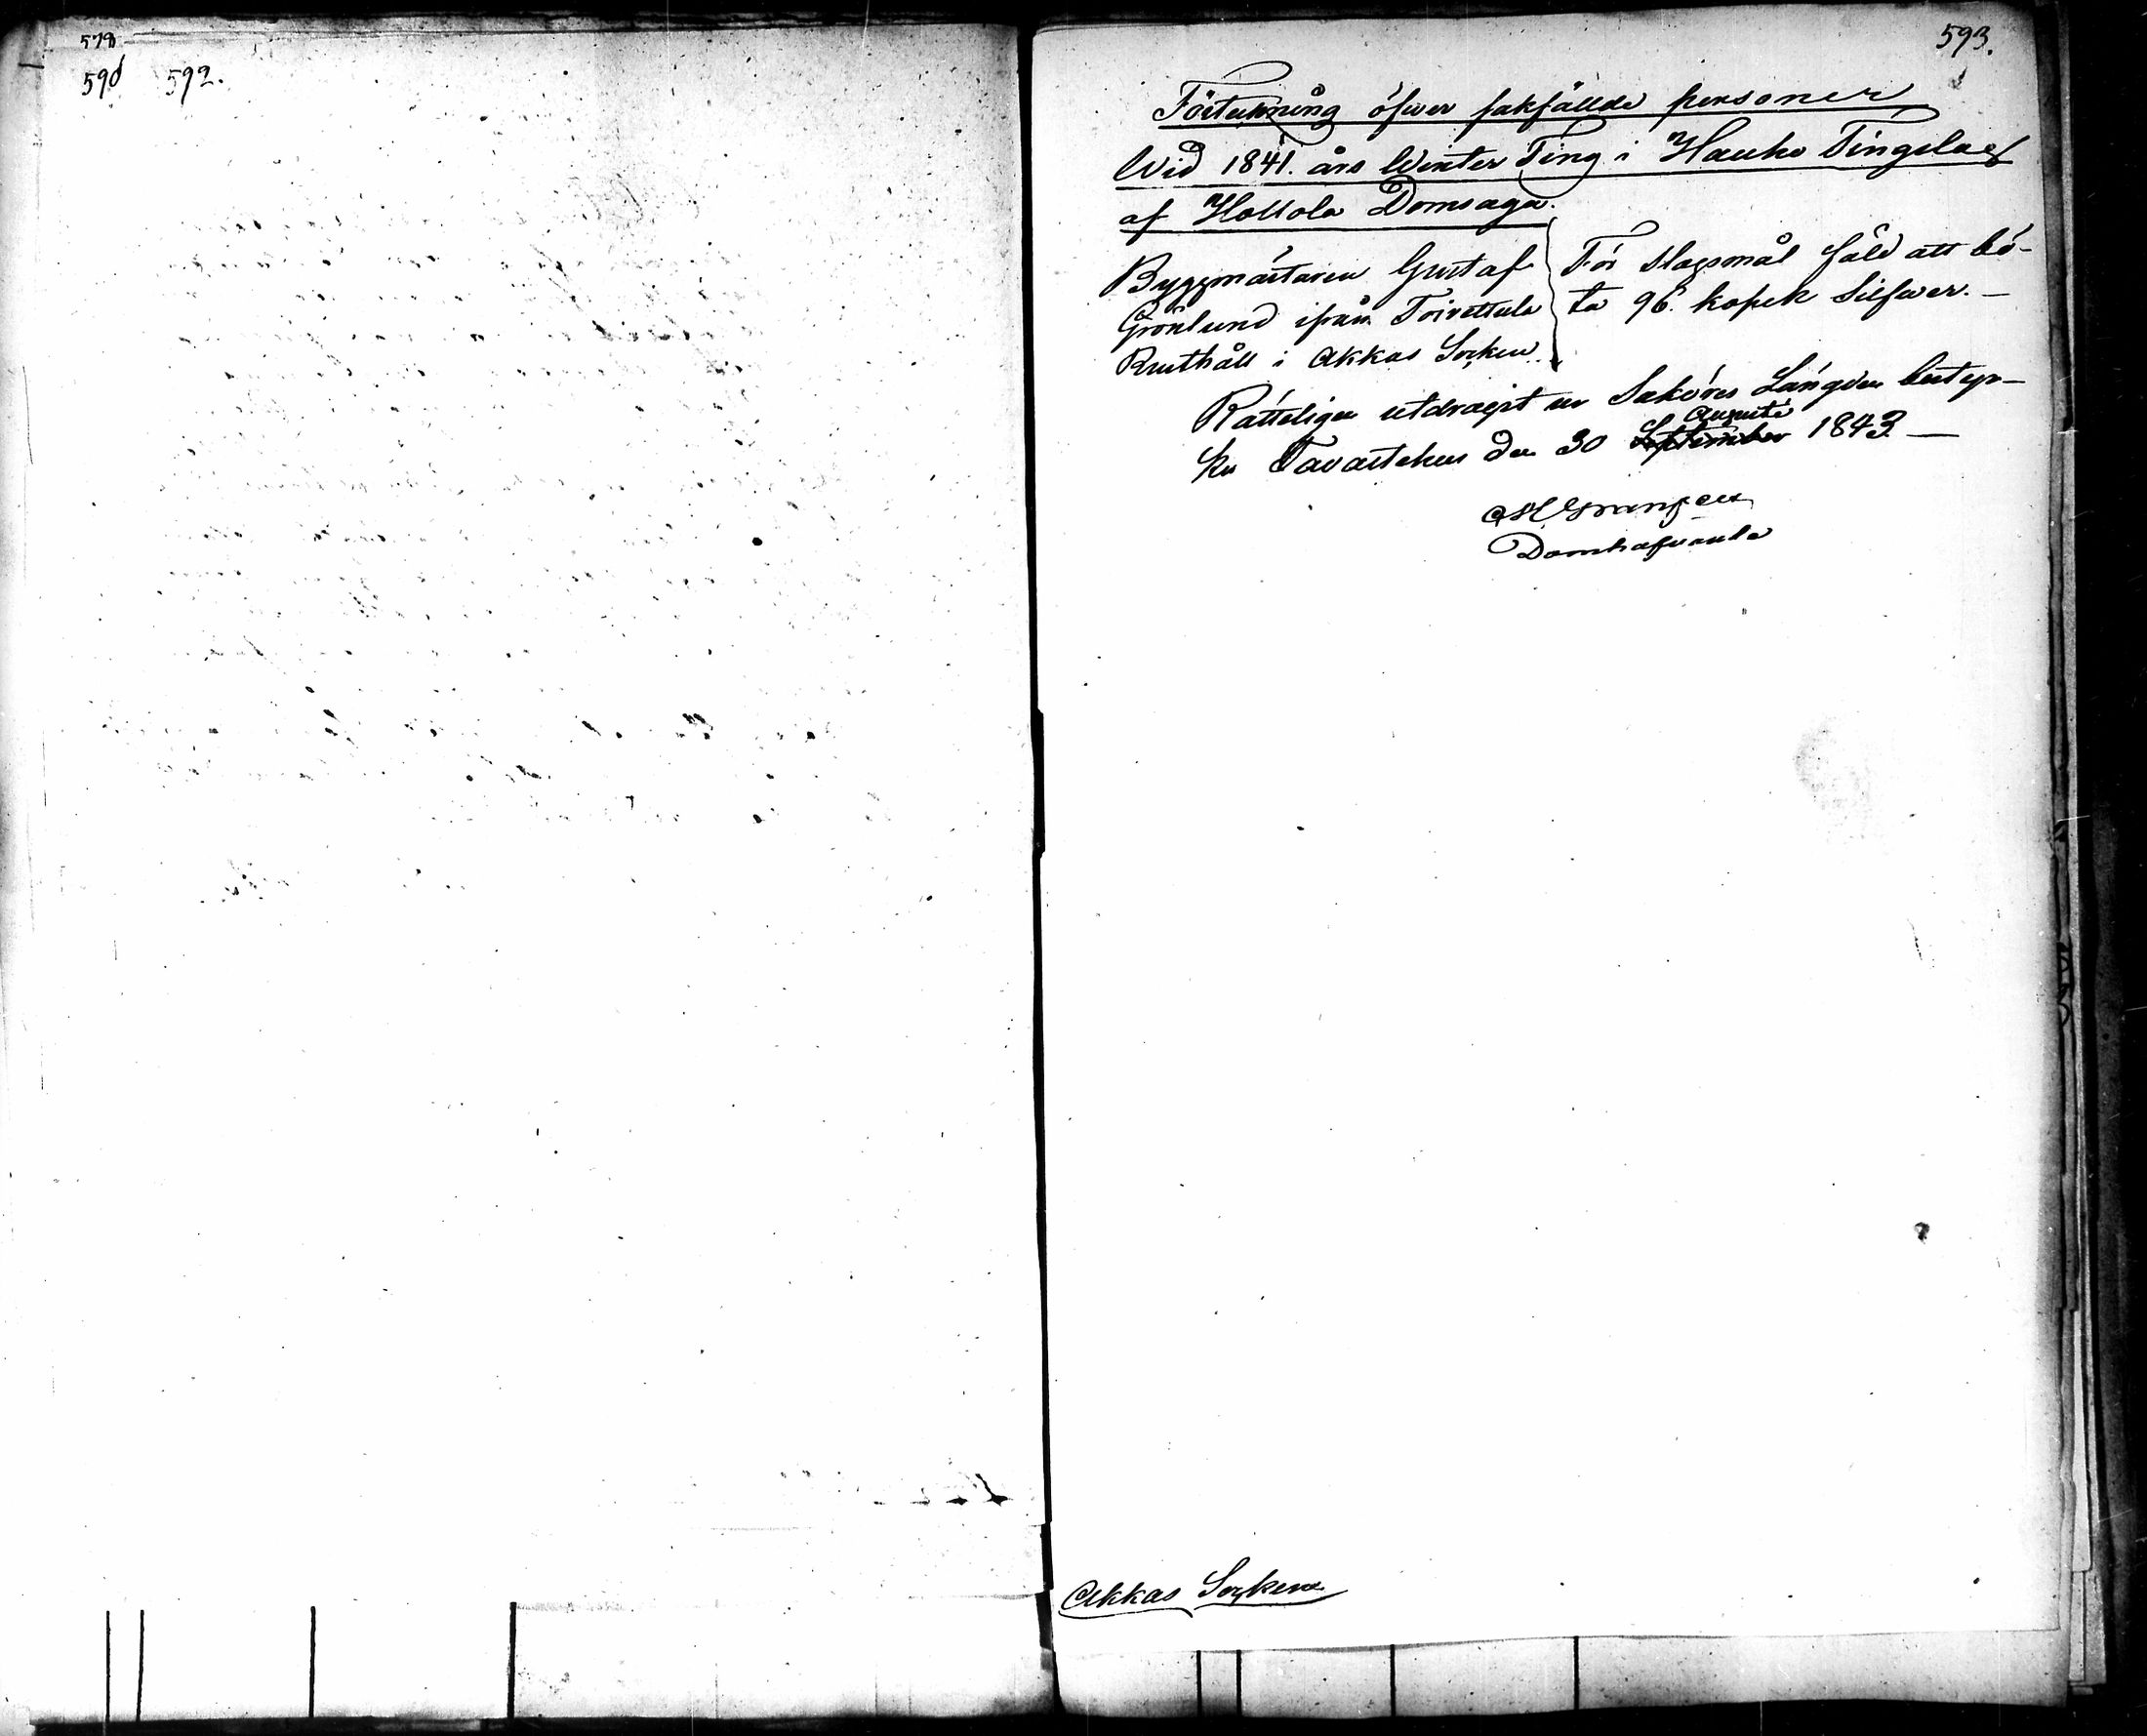 578
590 592.
593.
Förteckning öfwer sakfällde personer
Wid 1841. års Winter Ting i Hauho Tingslag
af Hollola Domsaga.
Byggmästaren Gustaf
Grönlund ifrån Toivettula
Rusthåll i Akkas Socken.
För slagsmål fäld att bö-
ta 96. kopek Silfwer. —
Rätteligen utdragit ur Saköres Längden bestyr-
ker Tavastehus den 30 September Augusti 1843. —
Domhafvande
Akkas Socken